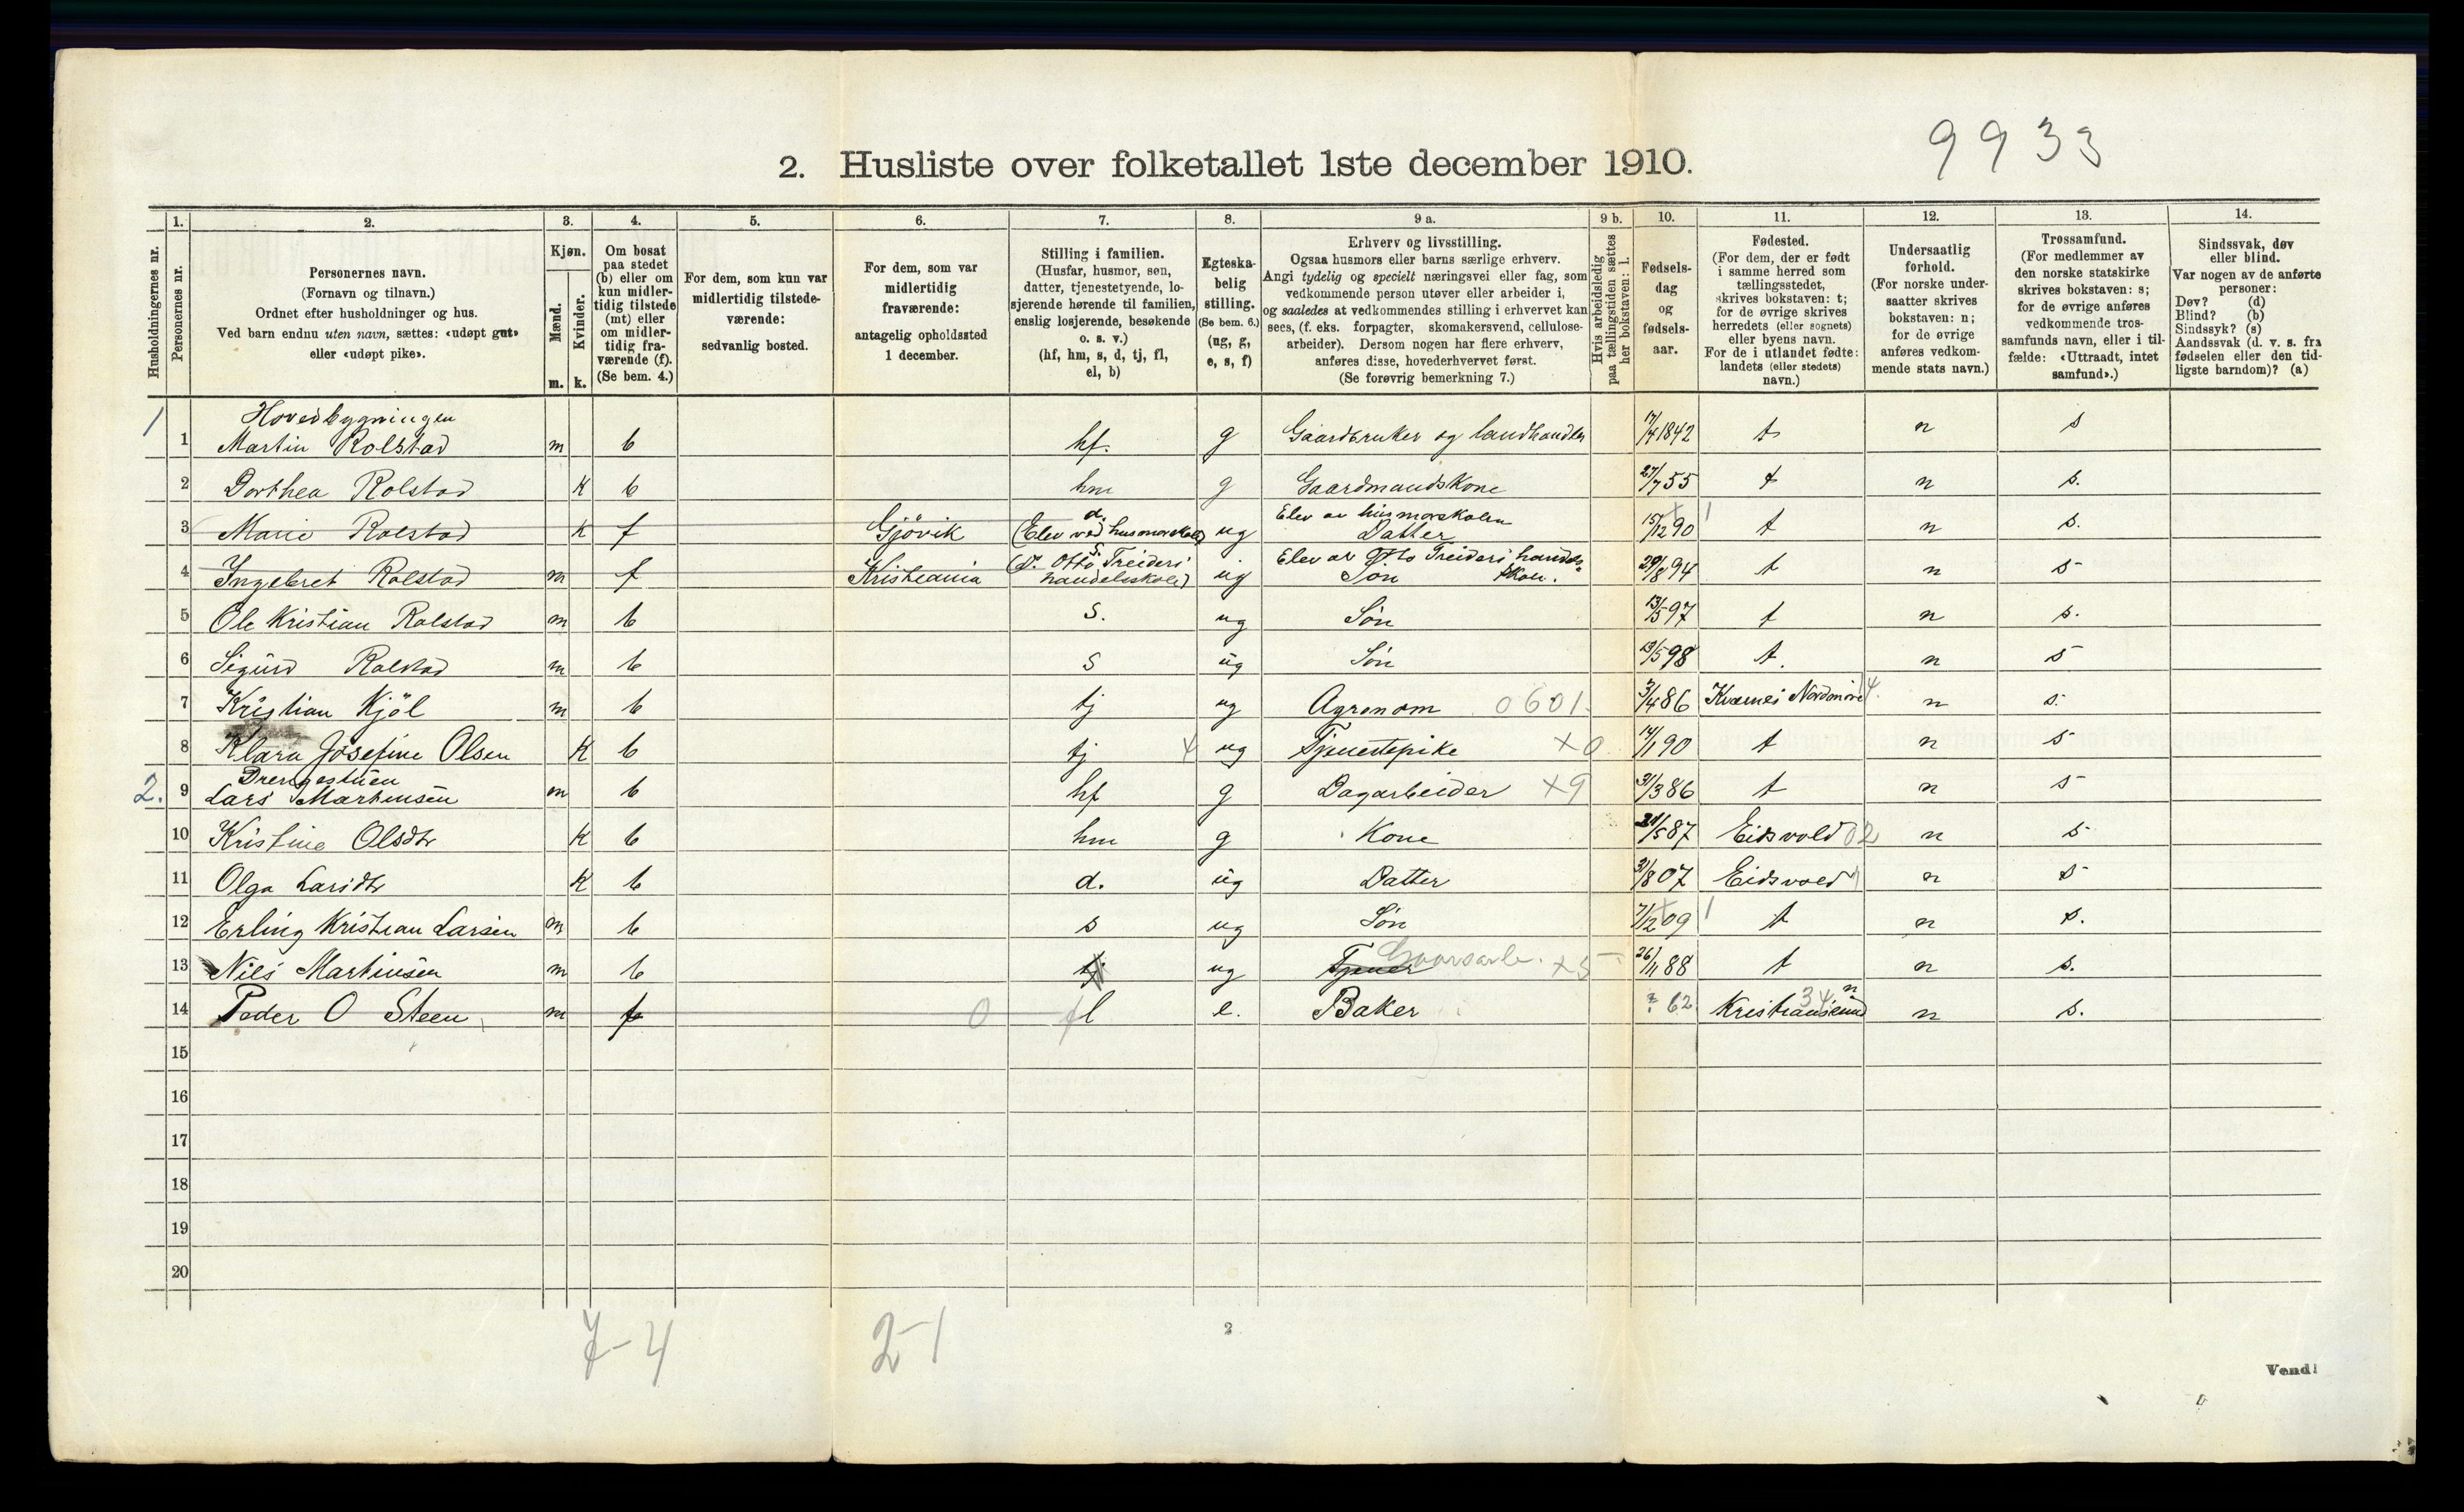 9933
2. Husliste over folketallet 1ste december 1910.
Husholdningernes nr.
1. Personernes nr.
2. Personernes navn.
(Fornavn og tilnavn.)
Ordnet efter husholdninger og hus.
Ved barn endnu uten navn, sættes: «udøpt gut»
eller «udøpt pike».
3. Kjøn.
Mænd. m.
Kvinder. k.
4. Om bosat
paa stedet
(b) eller om
kun midler-
tidig tilstede
(mt) eller
om midler-
tidig fra-
værende (f).
(Se bem. 4.)
5. For dem, som kun var
midlertidig tilstede-
værende:
sedvanlig bosted.
6. For dem, som var
midlertidig
fraværende:
antagelig opholdssted
1 december.
7. Stilling i familien.
(Husfar, husmor, søn,
datter, tjenestetyende, lo-
sjerende hørende til familien,
enslig losjerende, besøkende
o. s. v.)
(hf, hm, s, d, tj, fl,
el, b)
8. Egteska-
belig
stilling.
(Se bem. 6.)
(ug, g,
e, s, f)
9 a. Erhverv og livsstilling.
Ogsaa husmors eller barns særlige erhverv.
Angi tydelig og specielt næringsvei eller fag, som
vedkommende person utøver eller arbeider i,
og saaledes at vedkommendes stilling i erhvervet kan
sees, (f. eks. forpagter, skomakersvend, cellulose-
arbeider). Dersom nogen har flere erhverv,
anføres disse, hovederhvervet først.
(Se forøvrig bemerkning 7.)
9 b. Hvis arbeidsledig
paa tællingstiden sættes
her bokstaven: l.
10. Fødsels-
dag
og
fødsels-
aar.
11. Fødested.
(For dem, der er født
i samme herred som
tællingsstedet,
skrives bokstaven: t;
for de øvrige skrives
herredets (eller sognets)
eller byens navn.
For de i utlandet fødte:
landets (eller stedets)
navn.)
12. Undersaatlig
forhold.
(For norske under-
saatter skrives
bokstaven: n;
for de øvrige
anføres vedkom-
mende stats navn.)
13. Trossamfund.
(For medlemmer av
den norske statskirke
skrives bokstaven: s;
for de øvrige anføres
vedkommende tros-
samfunds navn, eller i til-
fælde: «Uttraadt, intet
samfund».)
14. Sindssvak, døv
eller blind.
Var nogen av de anførte
personer:
Døv? (d)
Blind? (b)
Sindssyk? (s)
Aandssvak (d. v. s. fra
fødselen eller den tid-
ligste barndom)? (a)
Hovedbygningen
1 1 Martin Rolstad m b hf. g Gaardbruker og landhandler 17/4 1842 t n s
2 Dorthea Rolstad K b hm g Gaardmandskone 27/7 55 t n s.
3 Marie Rolstad K f Gjövik d. (Elev ved husmorskole) ug Elev av husmorskolen Datter 15/12 90 t n s.
4 Ingebret Rolstad m f Kristiania s. (Otto Treiders handelsskole) ug Elev av Otto Treiders handelsskole. Søn 29/8 94 t n s
5 Ole Kristian Rolstad m b s. ug Søn 13/5 97 t n s.
6 Sigurd Rolstad m b s ug Søn 13/5 98 t. n s
7 Kristian Kjöl m b tj ug Agronom 0601. 3/4 86 Kvernes Nordmøre n s.
8 Klara Josefine Olsen K b tj 4 ug Tjenestepike +0 14/1 90 t n s
Drengestuen
2. 9 Lars Martinsen m b hf g Dagarbeider +9 31/3 86 t n s
10 Kristine Olsdtr K b hm g Kone 21/5 87 Eidsvold 02 n s
11 Olga Larsdtr K b d. ug Datter 31/8 07 Eidsvold n s
12 Erling Kristian Larsen m b s ug Søn 7/12 09 t n s.
13 Nils Martinsen m b tj ug Tjener Gaardsarb. +5 26/11 88 t n s.
14 Peder O Steen m f 0 fl e. Baker ? 62 Kristiansund n 34 n s.
15
16
17
18
19
20
7-4
2-1
2
Vend!